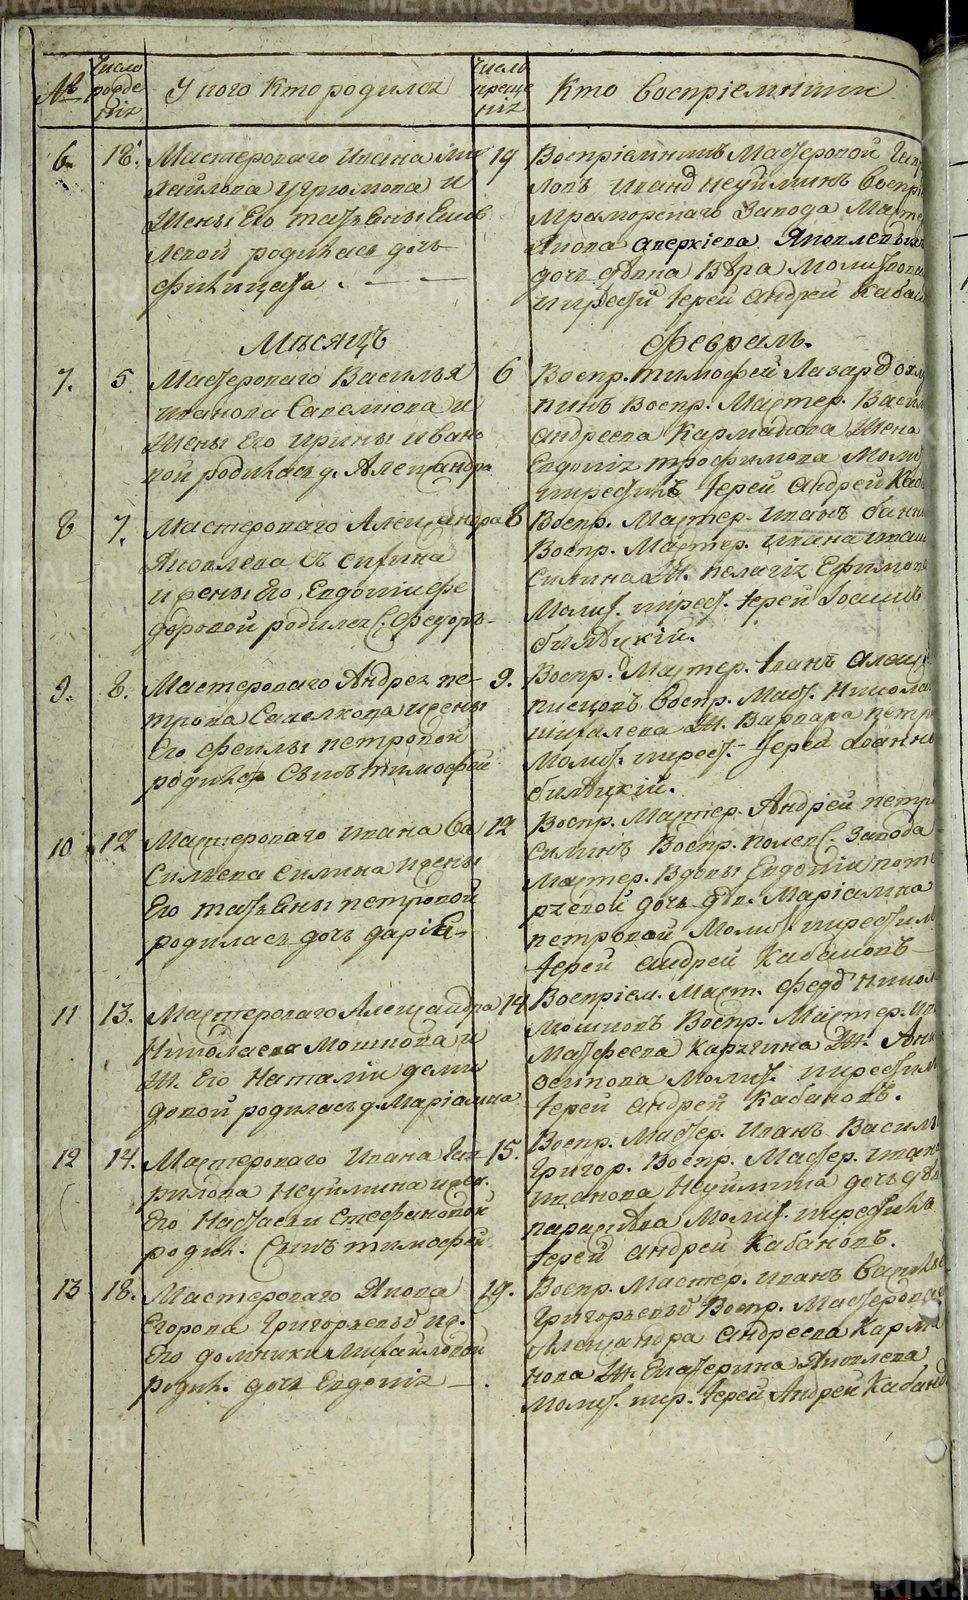 METRIKI.GASO-URAL.RU
№
Число рожде нія
У кого кто родился
Число креще нія
Кто воспріемники
6. 18. Мастероваго Ивана Ми
хайлова Угрюмова и
жены Его татьяны
левой родилась дочь
19 Воспріемникъ Мастеровой
ловъ Иванъ Неуйминъ воспр
Мраморскаго завода Масте
Якова аверкіева Яковлева
дочь девка Вѣра Молитвова
и крестил Іерей Андрей Кабан
Мѣсяцъ
Февраль.
7. 5 Мастероваго Василья
иванова Савелкова и
жены Его ирины ивано
вой родилась д. Александра
6 Воспр. тимофей Лазар
Воспр. Мастер. Васил
андреева Карманова жена
Евдокія трофимова Моли
и крестилъ Іерей Андрей Каба
8 7. Мастероваго Александра
Яковлева
и жены Его, Евдокіи фе
доровой родился С. Федоръ
8 Воспр. Мастер. Иванъ
Воспр. Мастер. Ивана
Силина Ж. пелагія Ефимова
Молит. крест. Іерей Іоаннъ
билѣцкій.
9. 8. Мастероваго Андрея пе
трова Савелкова и жены
Его феклы петровой
родился Сынъ тимофей
9. Воспр. Мастер. Іванъ алекс
писцовъ воспр. Маст. Никола
шихалева Ж. Варвара петр
Молит. крест. Іерей Іоаннъ
билѣцкій.
10 12 Мастероваго Ивана Ва
сильева Силина и жены
Его татьяны петровой
родилась дочь дарія
12 Воспр. Мастер. Андрей петр
Силинъ Воспр. полевс. завода
Мастер. Вдовы Евдокіи
дочь дѣв. Маріамна
петровой Молит. и крестил
Іерей Андрей Кабановъ
11 13. Мастероваго Александра
Николаева Мошкова и
Ж. Его Наталіи деми
довой родилась д. Маріамна
14 Воспріем. Маст. Федъ Никол
Мошковъ Воспр. Мастер.
Матфеева Карякина Ж. Анн
осипова Молит. и крестил
Іерей Андрей Кабановъ.
12 14. Мастероваго Ивана Гав
рилова Неуймина и жен.
Его Настасьи Стефановой
родил. Сынъ тимофей
15. Воспр. Мастер. Иванъ Василь
Григор. Воспр. Мастер. ивана
иванова Неуймина дочь дѣв
параскева Молит. и крестилъ
Іерей Андрей Кабановъ.
13 18. Мастероваго Якова
Егорова Григорьевыхъ и ж.
Его домники Михайловой
родил. дочь Евдокія
19. Воспр. Мастер. Иванъ Василье
Григорьевыхъ Воспр. Мастерова
Александра андреева Карма
нова Ж. Екатерина Яковлева
Молит. кр. Іерей Андрей Кабанов
METRIKI.GASO-URAL.RU
METRIKI.GASO-URAL.RU